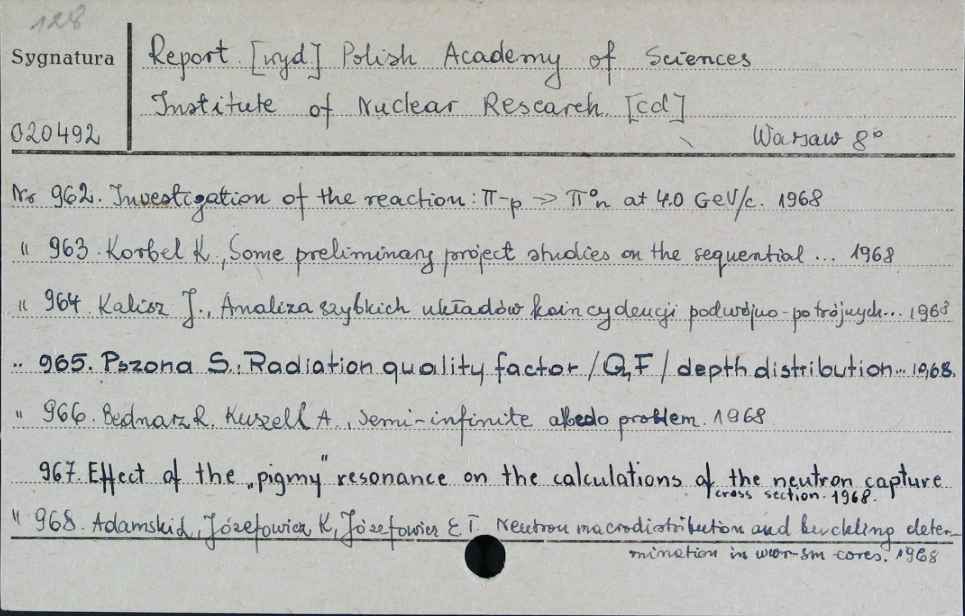 128
Sygnatura
Report [wyd] Polish Academy of Sciences
Institute of Nuclear Research [cd]
020492
Warsaw 8°
Nr 962. Investigation of the reaction: π-p → π°n at 4.0 GeV/c. 1968
" 963. Korbel K., Some preliminary project studies on the sequential ... 1968
" 964. Kalisz J., Analiza szybkich układów koincydencji podwójno-potrójnych... 1968
" 965. Pszona S., Radiation quality factor /Q,F/ depth distribution... 1968.
" 966. Bednarz R, Kuszell A., Semi-infinite albedo problem. 1968
967. Effect of the „pigmy" resonance on the calculations of the neutron capture
cross section. 1968.
" 968. Adamski, Józefowicz K, Józefowicz E T. Neutron macrodistribution and buckling deter-
mination in cores. 1968